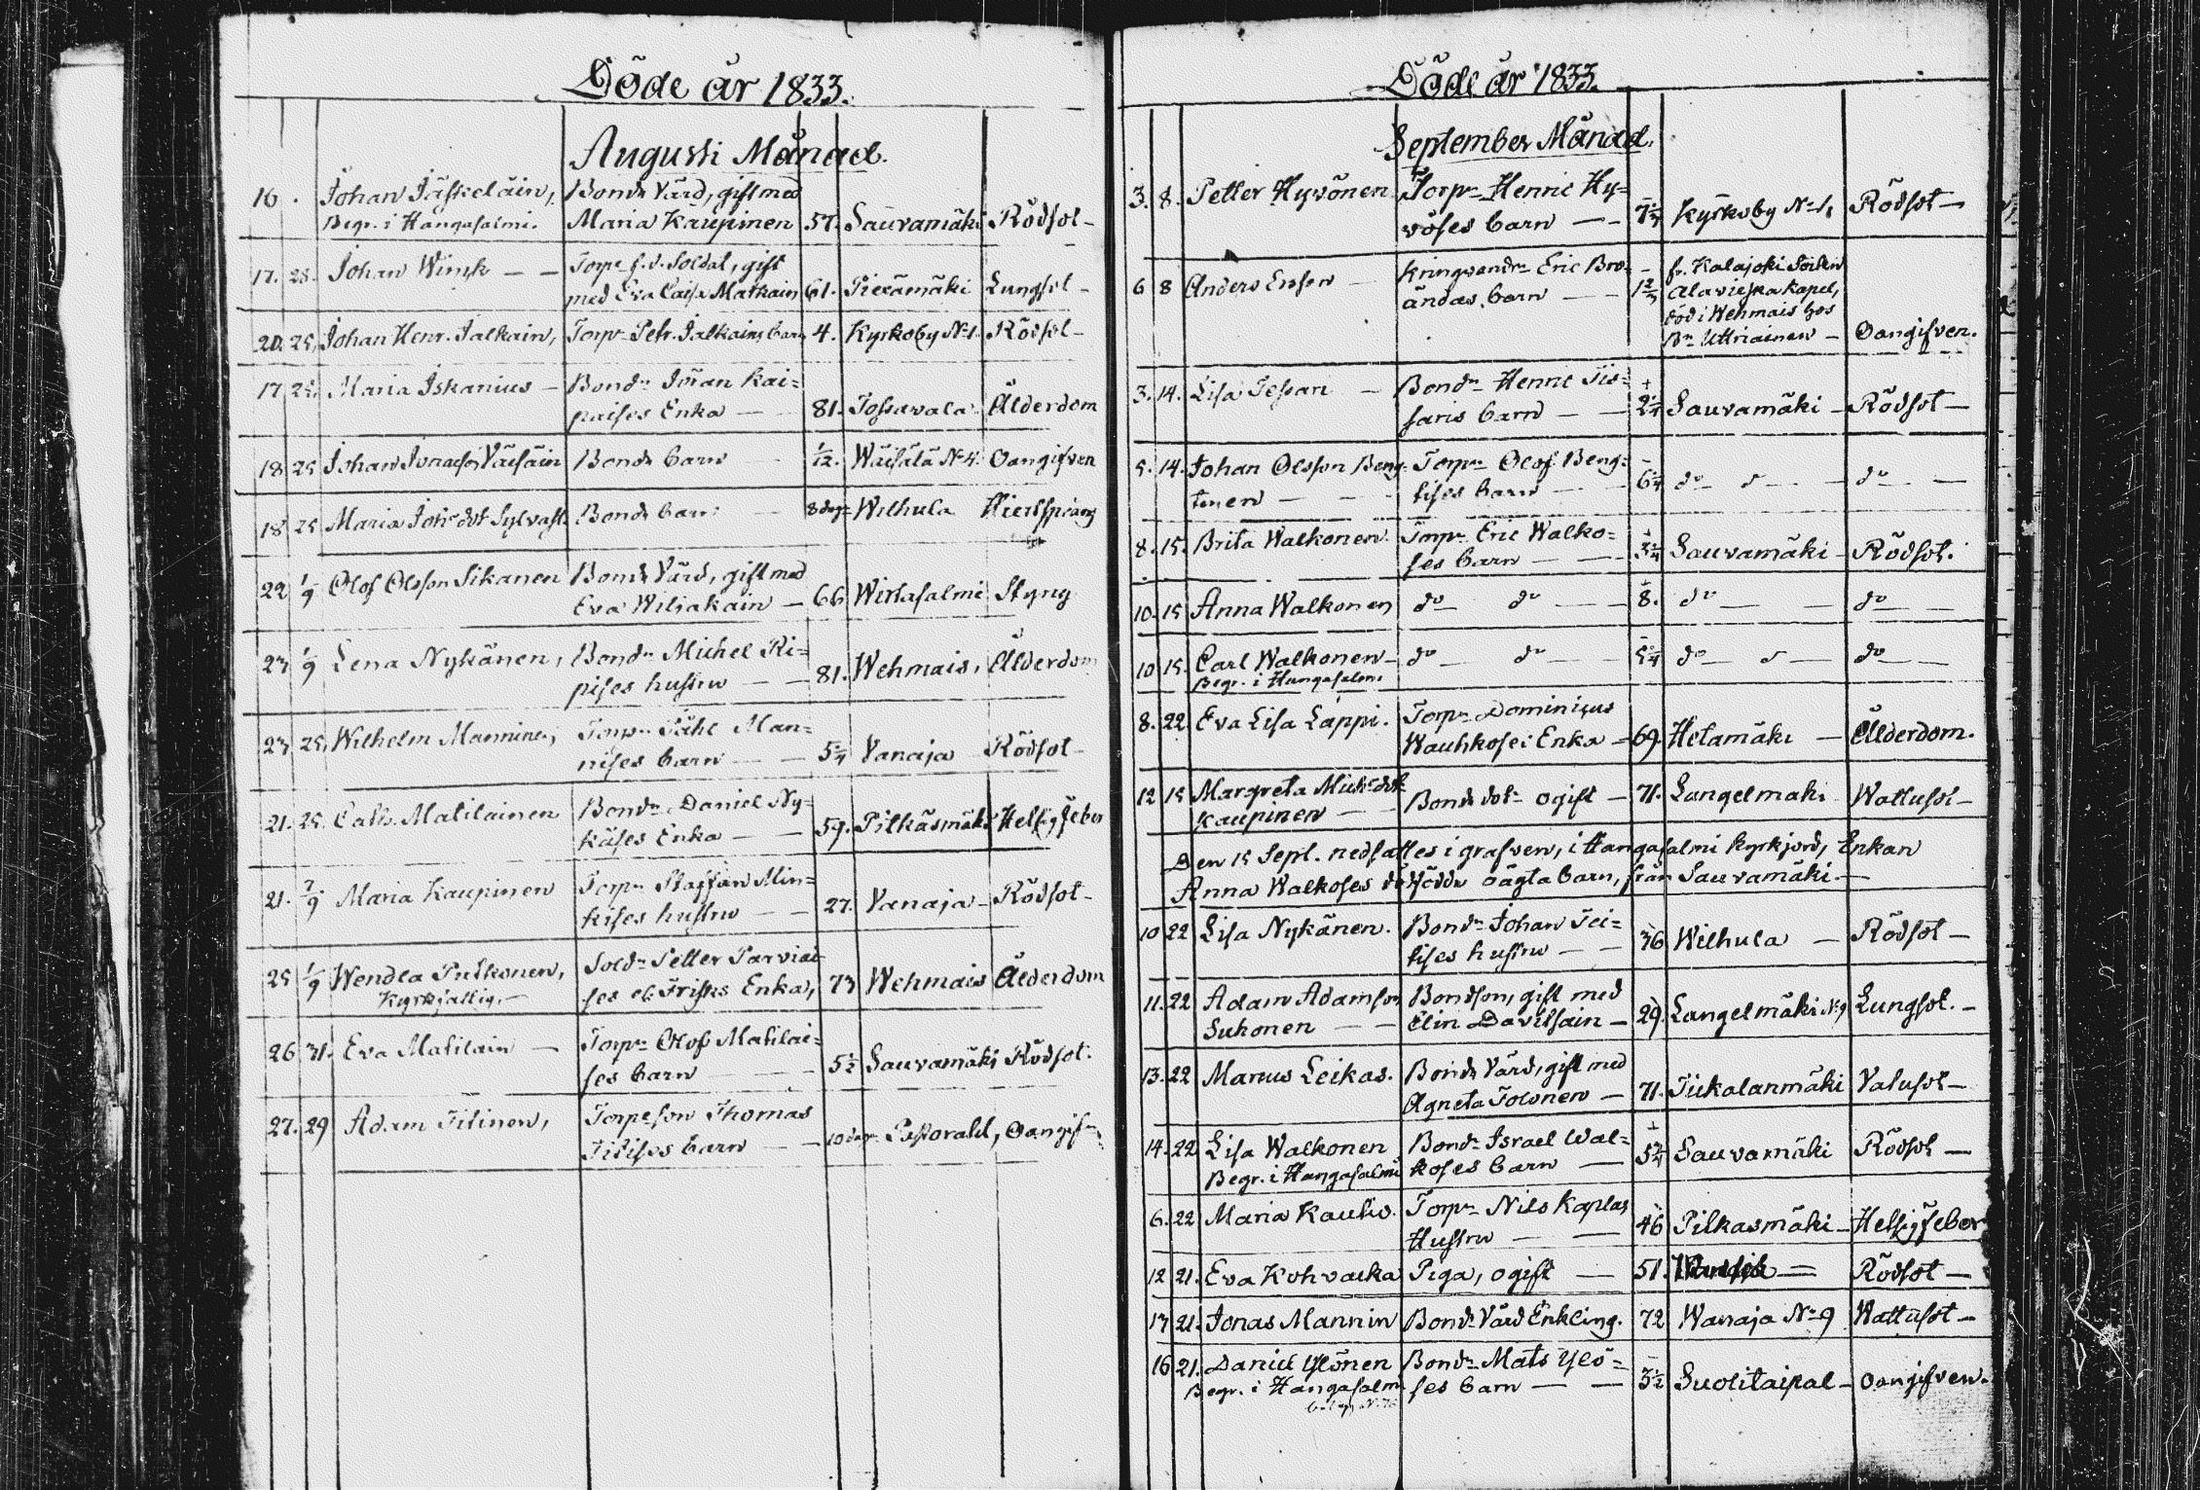 Döde år 1833.
Augusti Månad.
16 . Johan Jäskeläin, Bonde Värd, gift med
Begr. i Hangasalmi. Maria Kaupinen 57. Sauvamäki Rödsot -
17. 25. Johan Wirsk — — Torpr f.d. Soldat, gift
med Eva Caisa Matkain 61. Piexämäki Lungsot -
20. 25. Johan Henr. Jalkain, Torpr Petr. Jalkains barn 4. Kyrkoby No 1. Rödsot -
17 25. Maria Iskanius — Bondn Johan Kai=
paises Enka — 81. Tossavala Ålderdom
18 25 Johan Jonasson Väisäin Bonde barn — 1/12. Wäisälä No 4. Oangifven
18 25 Maria Johsdot Sylvast. Bonde barn — 8 dag: Wilhula Hiertsprång
22 1/9 Olof Olsson Sikanen Bonde Värd, gift med
Eva Wiljakain — 66 Wirtasalmi Styng
23 1/9 Lena Nykänen, Bondn Michel Ri=
pises hustru — — 81. Wehmais, Ålderdom
23 25, Wilhelm Manninen, Torpr Påhl Man=
nises barn — — 5 3/4 Vanaja Rödsot -
21. 25. Cath. Matilainen Bondn Daniel Ny=
käses Enka — — 59. Pilkäsmäki Helsigfeber
21. 7/9 Maria Kaupinen Torpr Staffan Min=
kises hustru — — 27. Vanaja - Rödsot -
25 1/9 Wendla Pulkonen, Soldn Petter Parviai=
Kyrkfattig. — ses el. Frisks Enka, 73 Wehmais Ålderdom
26 31. Eva Matilain — Torpr Olof Matilai=
ses barn — 5 1/2 Sauvamäki Rödsot.
27. 29 Adam Titinen, Torpreson Thomas
Titises barn — — 10 dagr Pastorald, Oangif
Döde år 1833.
September Månad.
3. 8. Petter Hyvönen Torpr Henric Hy=
vöses barn — — Kyrkoby No 1, Rödsot —
6 8 Anders Ersson — Kringvandr. Eric Bro= fr. Kalajoki Socken
ändas barn — — Alavieska Kapel,
död i Wehmais hos
Bn Uttriainen — Oangifven.
3. 14. Lisa Tessan — Bondn Henric Tis=
saris barn — — 2 1/4 Sauvamäki — Rödsot —
5. 14. Johan Olsson Beng= Torpr Olof Beng=
tinen — — tises barn — — 6 1/4 do — do — do —
8. 15. Brita Walkonen. Torpr Eric Walko=
ses barn — — 3 1/4 Sauvamäki — Rödsot.
10. 15 Anna Walkonen do — do — — 8. do — — do —
10 15. Carl Walkonen — do — do — 5 1/4 do — do — do —
Begr. i Hangasalmi
8. 22 Eva Lisa Lappi. Torpr Dominicus
Wauhkoses Enka — 69. Hetamäki — Ålderdom.
12 15 Margreta Michsdot
Kaupinen — — Bonde dotr ogift — 71. Langelmaki Wattusot —
Den 15 Sept. nedsattes i grafven, i Hangasalmi kyrkjord, Enkan
Anna Walkoses dödfödde oägta barn, från Sauvamäki. —
10 22 Lisa Nykänen. Bondn Johan Tei=
tises hustru — — 36 Wilhula — Rödsot —
11. 22 Adam Adamson Bondson, gift med
Suhonen — — Elin Davitsain — 29. Langelmäki No 9 Lungsot. —
13. 22 Marcus Leikas. Bonde Värd, gift med
Agneta Tolonen — 71. Tiikalanmäki Vatusot —
14. 22 Lisa Walkonen Bondn Israel Wal=
Begr. i Hangasalmi koses barn — 5 3/4 Sauvamäki Rödsot —
6. 22 Maria Kauhs. Torpr Nils Kaplas
Hustru — — 46 Pilkasmäki — Helsigfeber
12 21. Eva Kohvacka Piga, ogift — 51. — Rödsot —
17 21. Jonas Mannin Bonde Värd Enkling. 72 Wanaja No 9 Wattusot —
16 21. Daniel Ylönen Bondn Mats Ylö=
Begr. i Hangasalmi ses barn — — 3 1/2 Suolitaipal — Oangifven.